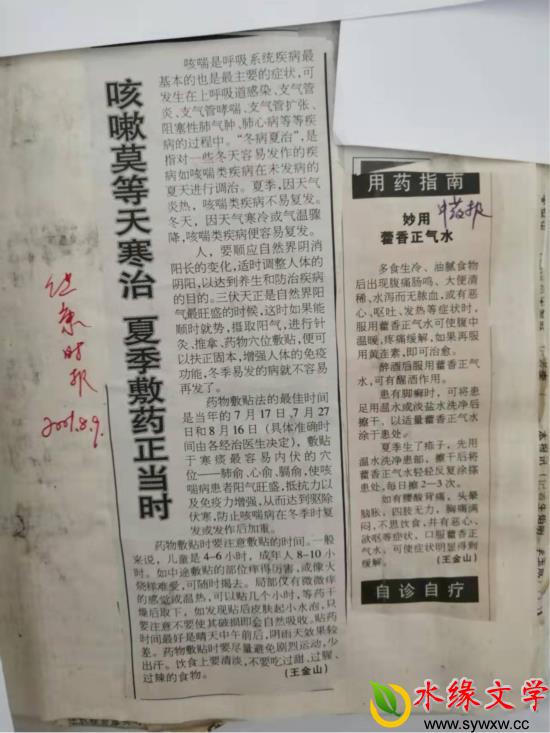 咳嗽莫等天寒治 夏季敷药正当时
咳喘是呼吸系统疾病最
基本的也是最主要的症状,可
发生在上呼吸道感染、支气管
炎、支气管哮喘、支气管扩张、
阻塞性肺气肿、肺心病等等疾
病的过程中。“冬病夏治”,是
指对一些冬天容易发作的疾
病如咳喘类疾病在未发病的
夏天进行调治。夏季,因天气
炎热,咳喘类疾病不易复发。
冬天,因天气寒冷或气温骤
降,咳喘类疾病便容易复发。
人,要顺应自然界阴消
阳长的变化,适时调整人体的
阴阳,以达到养生和防治疾病
的目的。三伏天正是自然界阳
气最旺盛的时候,这时如果能
顺时就势,摄取阳气,进行针
灸、推拿、药物穴位敷贴,便可
以扶正固本,增强人体的免疫
功能,冬季易发的病就不容易
再发了。
药物敷贴法的最佳时间
是当年的7月17日,7月27
日和8月16日(具体准确时
间由各经治医生决定),敷贴
于寒痰最容易内伏的穴
位——肺俞、心俞、膈俞,使咳
喘病患者阳气旺盛,抵抗力以
及免疫力增强,从而达到驱除
伏寒,防止咳喘病在冬季时复
发或发作后加重。
药物敷贴时要注意敷贴的时间。一般
来说,儿童是4-6小时,成年人8-10小
时。如中途敷贴的部位痒得厉害,或像火
烧样难受,可随时揭去。局部仅有微微痒
的感觉或温热,可以贴几个小时,等药干
燥后取下,如发现贴后皮肤起小水泡,只
要注意不要使其破损即会自然吸收。贴药
时间最好是晴天中午前后,阴雨天效果较
差。药物敷贴时要尽量避免剧烈运动,少
出汗。饮食上要清淡,不要吃过甜、过腥、
过辣的食物。
(王金山)
健康时报
2001.8.9.
用药指南
妙用
藿香正气水
中药报
多食生冷、油腻食物
后出现腹痛肠鸣、大便清
稀、水泻而无脓血,或有恶
心、呕吐、发热等症状时,
服用藿香正气水可使腹中
温暖,疼痛缓解,如果再服
用黄连素,即可治愈。
醉酒后服用藿香正气
水,可有醒酒作用。
患有脚癣时,可将患
足用温水或淡盐水洗净后
擦干、以适量藿香正气水
涂于患处。
夏季生了痱子,先用
温水洗净患部,擦干后将
藿香正气水轻轻反复涂搽
患处,每日搽2-3次。
如有腰酸背痛、头晕
脑胀、四肢无力、胸痛满
闷,不思饮食,并有恶心、
欲呕等症状,口服藿香正
气水,可使症状明显得到
缓解。
(王金山)
自诊自疗
水缘文学
www.sywxw.cc